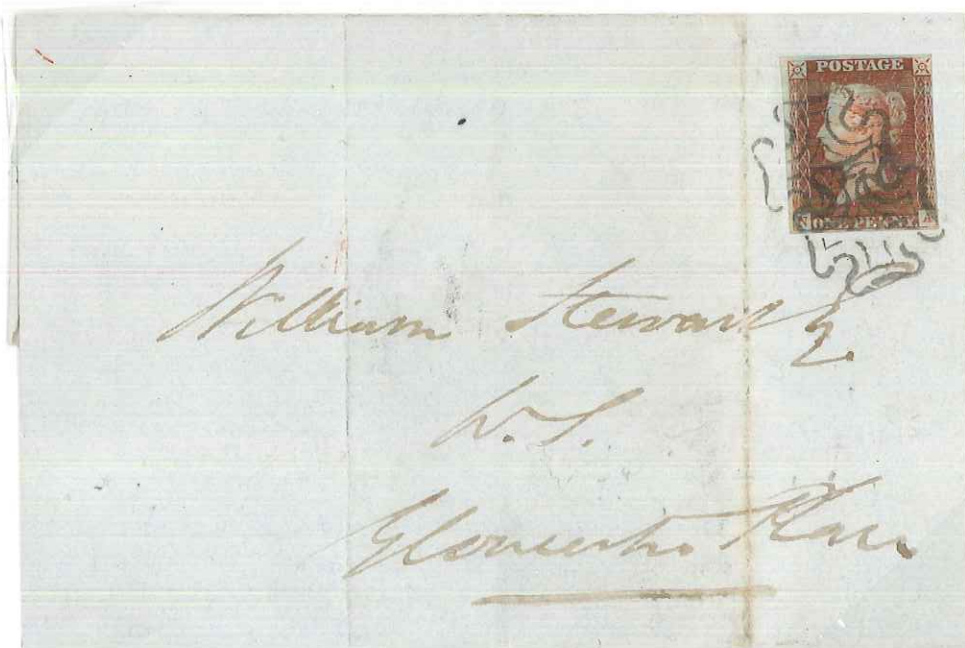 POSTAGE
N ONE PENNY A
William Stewart
W.S.
Gloucester Place